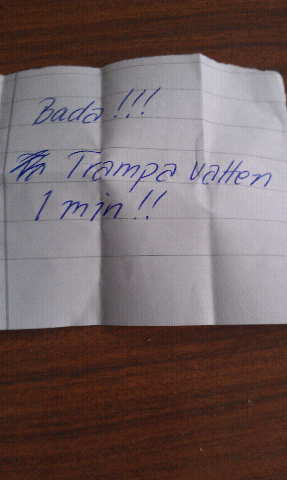 Bada!!!
Trampa vatten
1 min!!